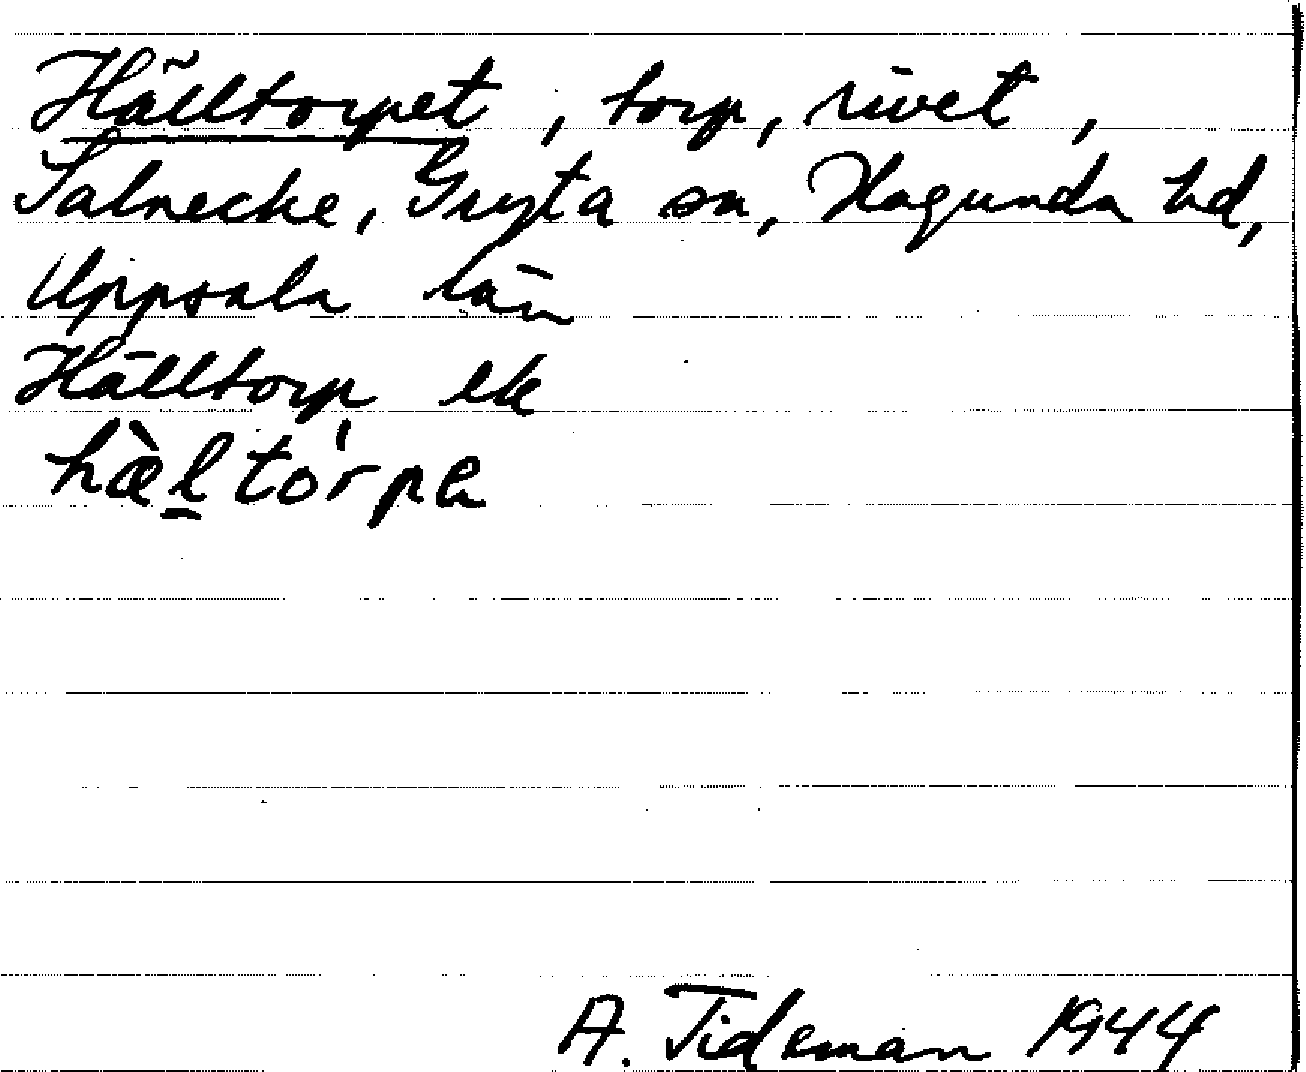 Hälltorpet, torp, rivet,
Salnecke, Gryta sn, Hagunda hd,
Uppsala län
Hälltorp ek
hæ̀l̠tórpa
A. Tideman 1944